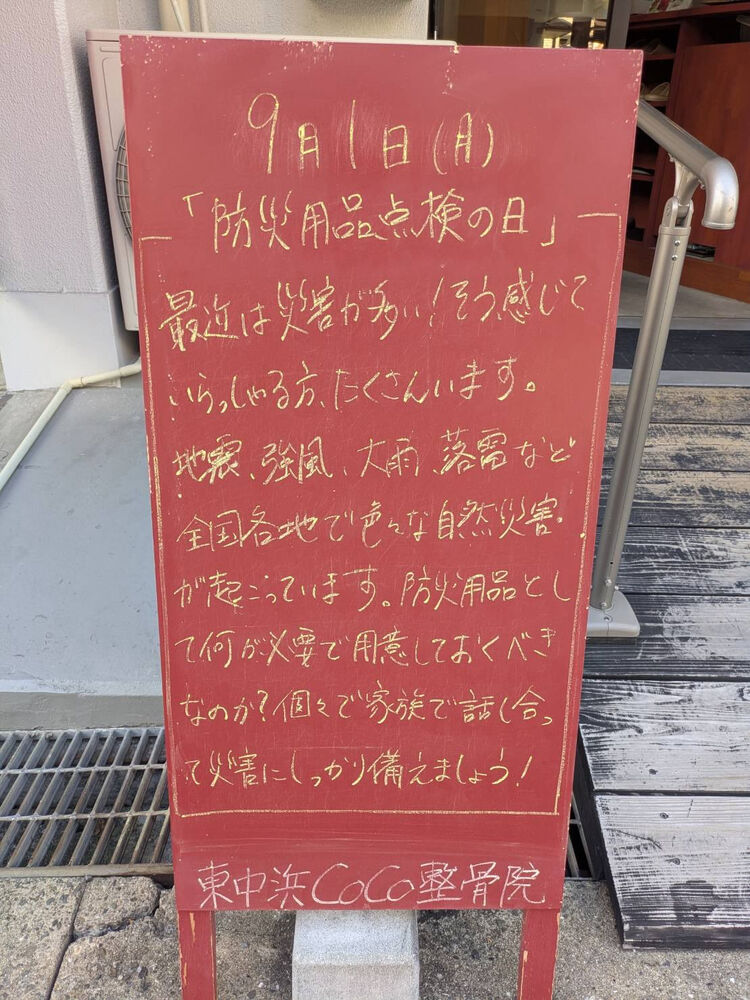 9月1日(月)
「防災用品点検の日」
最近は災害が多い!そう感じて
いらっしゃる方、たくさんいます。
地震、強風、大雨、落雷など
全国各地で色々な自然災害
が起こっています。防災用品とし
て何が必要で用意しておくべき
なのか?個々で家族で話し合っ
て災害にしっかり備えましょう!
東中浜CoCo整骨院